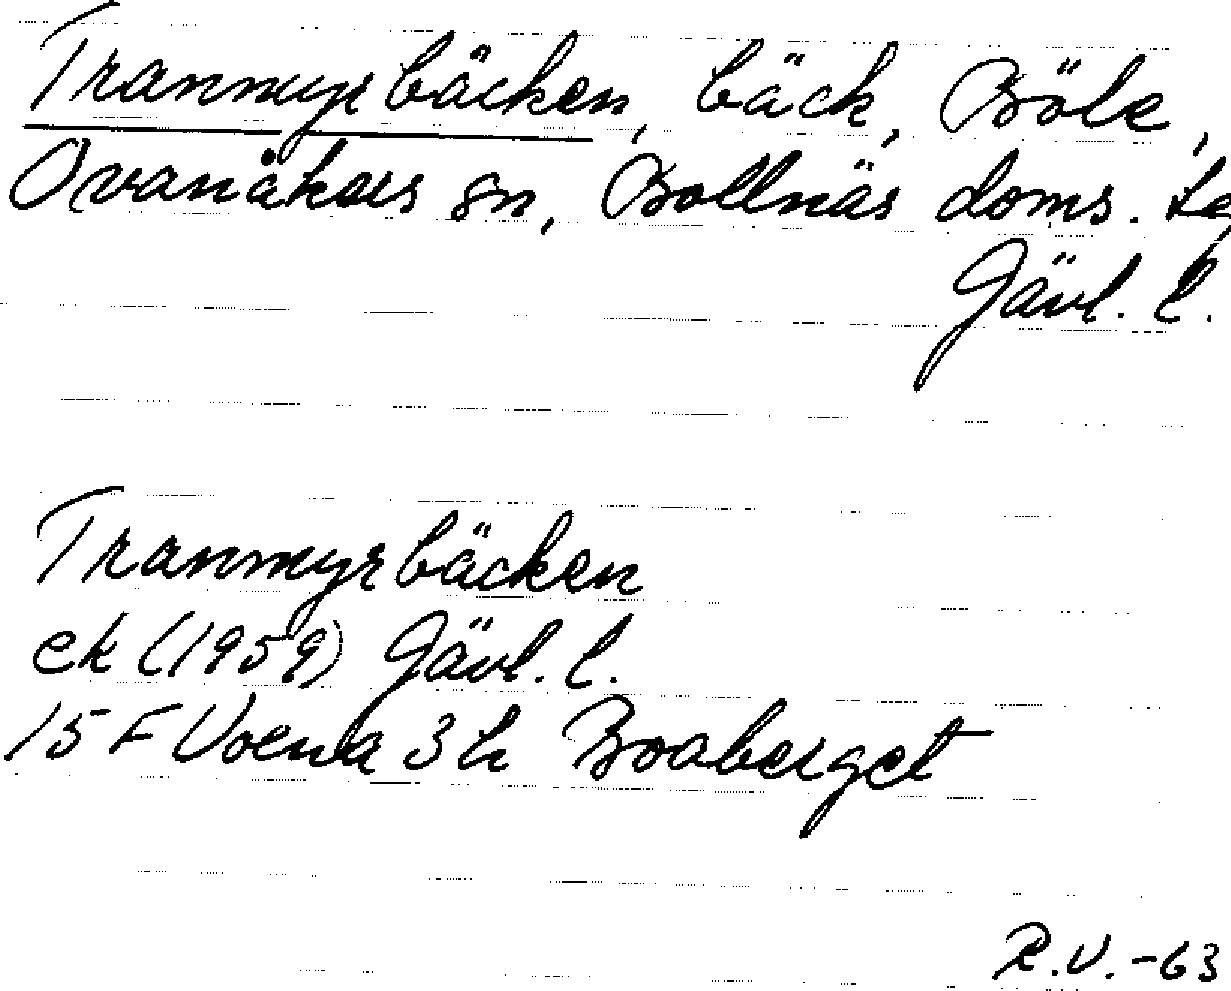 Tranmyrbäcken, bäck, Böle,
Ovanåkers sn, Bollnäs doms. tg
Gävl. l.
Tranmyrbäcken
ek (1959) Gävl. l.
15 F Voxna 3 h Boaberget
R.V. -63